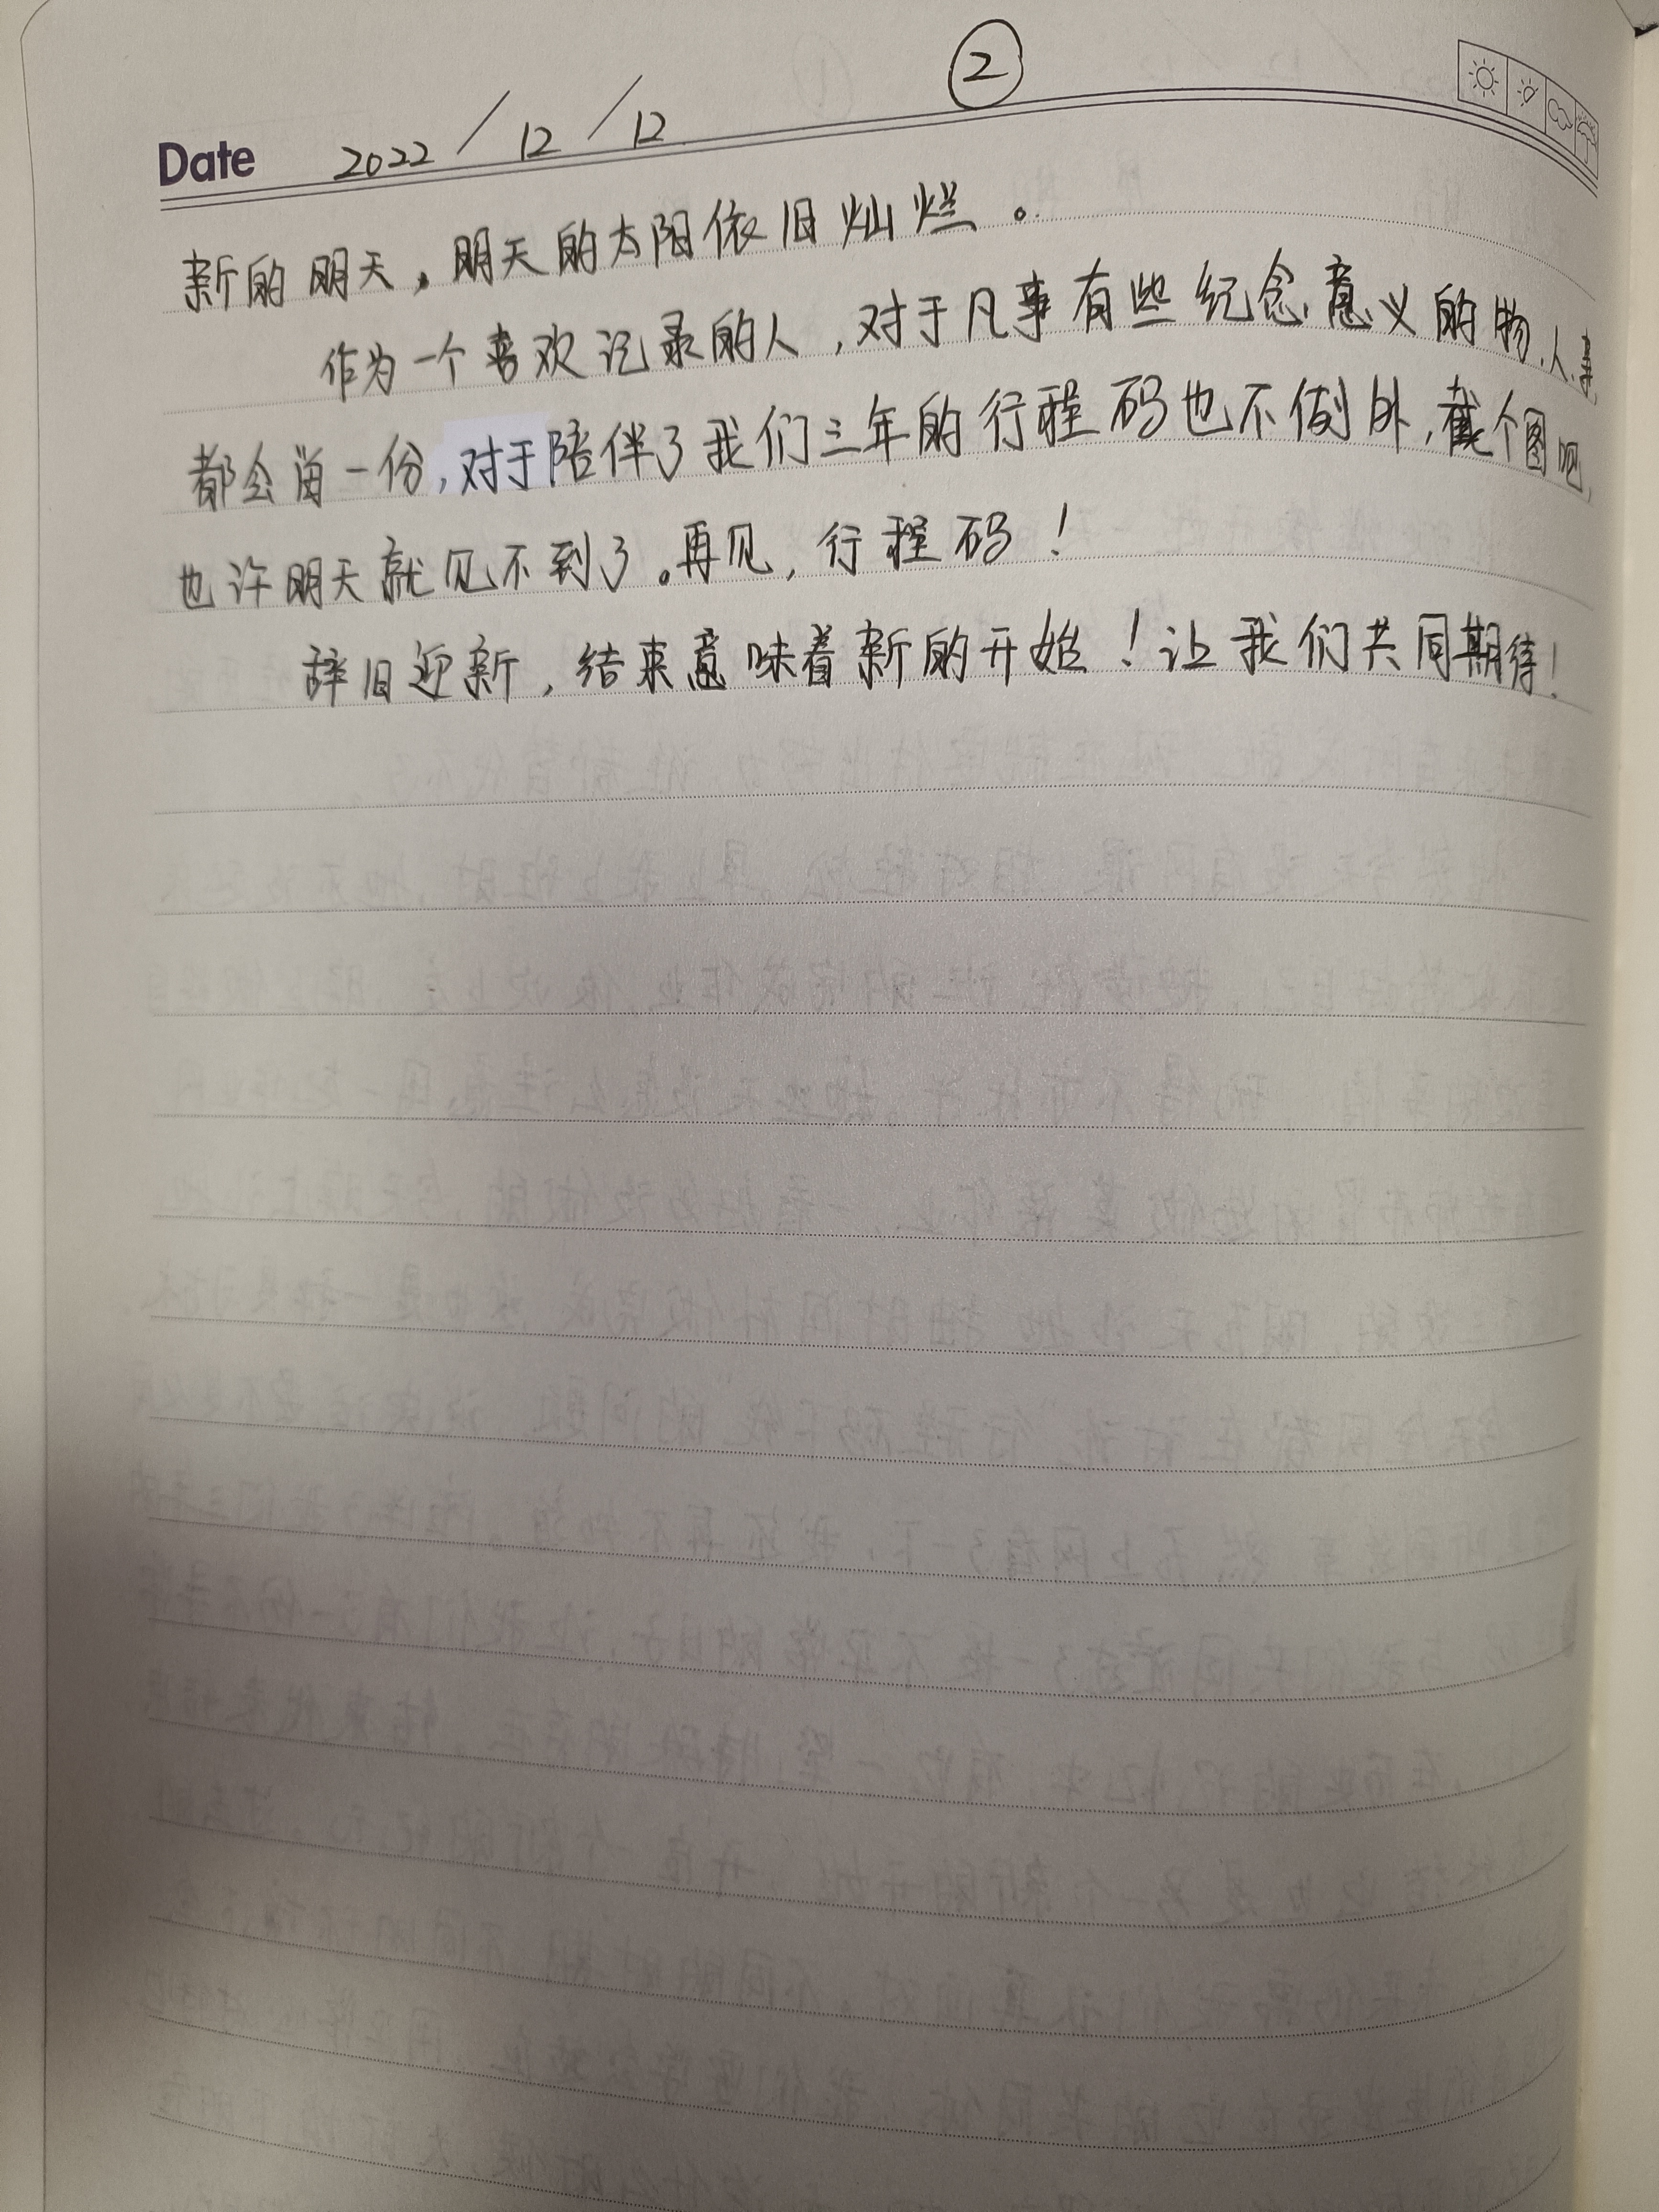 ②
Date 2022/12/12
新的明天，明天的太阳依旧灿烂。
作为一个喜欢记录的人，对于凡事有些纪念意义的物、人、事
都会留一份，对于陪伴了我们三年的行程码也不例外，截个图吧，
也许明天就见不到了。再见，行程码！
辞旧迎新，结束意味着新的开始！让我们共同期待！